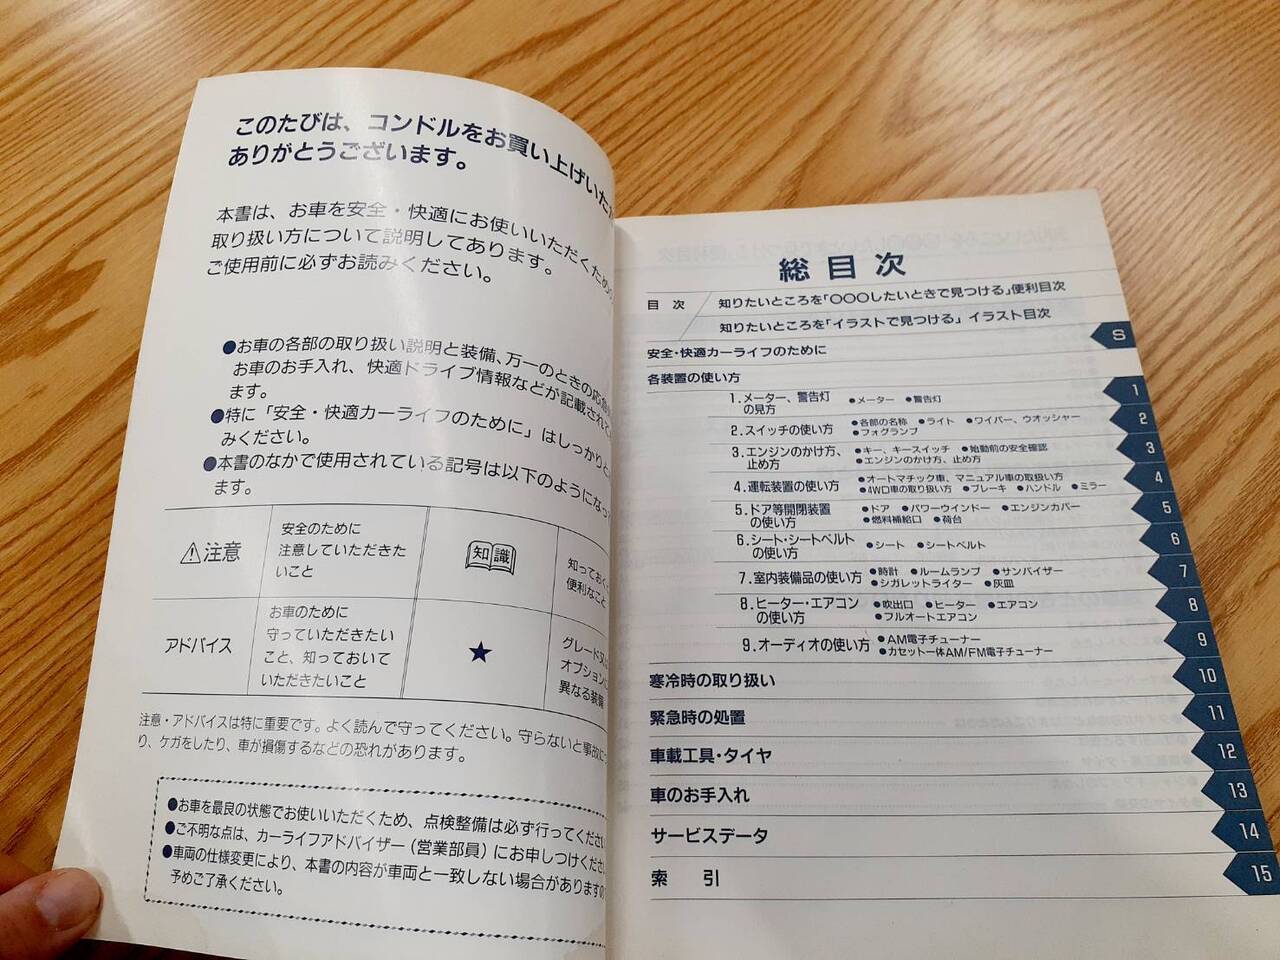 このたびは、コンドルをお買い上げいただ
ありがとうございます。
本書は、お車を安全・快適にお使いいただくための
取り扱い方について説明してあります。
ご使用前に必ずお読みください。
●お車の各部の取り扱い説明と装備、万一のときの応急
お車のお手入れ、快適ドライブ情報などが記載されて
ます。
●特に「安全・快適カーライフのために」はしっかりと
みください。
●本書のなかで使用されている記号は以下のようになっ
ます。
⚠注意
安全のために
注意していただきた
いこと
知識
知っておく
便利なこと
アドバイス
お車のために
守っていただきたい
こと、知っておいて
いただきたいこと
★
グレード
オプション
異なる装備
注意・アドバイスは特に重要です。よく読んで守ってください。守らないと事故に
り、ケガをしたり、車が損傷するなどの恐れがあります。
●お車を最良の状態でお使いいただくため、点検整備は必ず行ってくださ
●ご不明な点は、カーライフアドバイザー(営業部員)にお申しつけくださ
●車両の仕様変更により、本書の内容が車両と一致しない場合がありますの
予めご了承ください。
総目次
目次
知りたいところを「○○○したいときで見つける」便利目次
知りたいところを「イラストで見つける」イラスト目次
安全・快適カーライフのために
S
各装置の使い方
1.メーター、警告灯
の見方
●メーター ●警告灯
1
2.スイッチの使い方
●各部の名称 ●ライト ●ワイパー、ウオッシャー
●フォグランプ
2
3.エンジンのかけ方、
止め方
●キー、キースイッチ ●始動前の安全確認
●エンジンのかけ方、止め方
3
4.運転装置の使い方
●オートマチック車、マニュアル車の取扱い方
●4WD車の取り扱い方 ●ブレーキ ●ハンドル ●ミラー
4
5.ドア等開閉装置
の使い方
●ドア ●パワーウインドー ●エンジンカバー
●燃料補給口 ●荷台
5
6.シート・シートベルト
の使い方
●シート ●シートベルト
6
7.室内装備品の使い方
●時計 ●ルームランプ ●サンバイザー
●シガレットライター ●灰皿
7
8.ヒーター・エアコン
の使い方
●吹出口 ●ヒーター ●エアコン
●フルオートエアコン
8
9.オーディオの使い方
●AM電子チューナー
●カセット一体AM/FM電子チューナー
9
寒冷時の取り扱い
10
緊急時の処置
11
車載工具・タイヤ
12
車のお手入れ
13
サービスデータ
14
索引
15